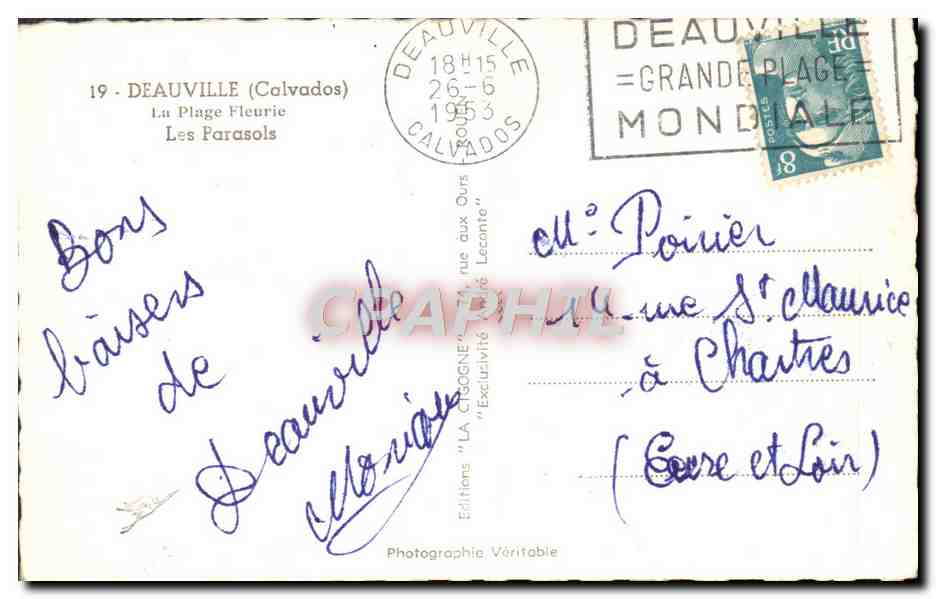 19 - DEAUVILLE (Calvados)
La Plage Fleurie
Les Parasols
DEAUVILLE
18H-15
26-6
1953
CALVADOS
DEAUVILLE
=GRANDE PLAGE=
MONDIALE
POSTES
8F
Bons
baisers
de
Deauville
Editions "LA CIGOGNE" 74, rue aux Ours - ROUEN
"Exclusivité André Leconte"
CPAPHIL
Poirier
14 rue St Maurice
à Chartres
(Eure et Loir)
Photographie Véritable